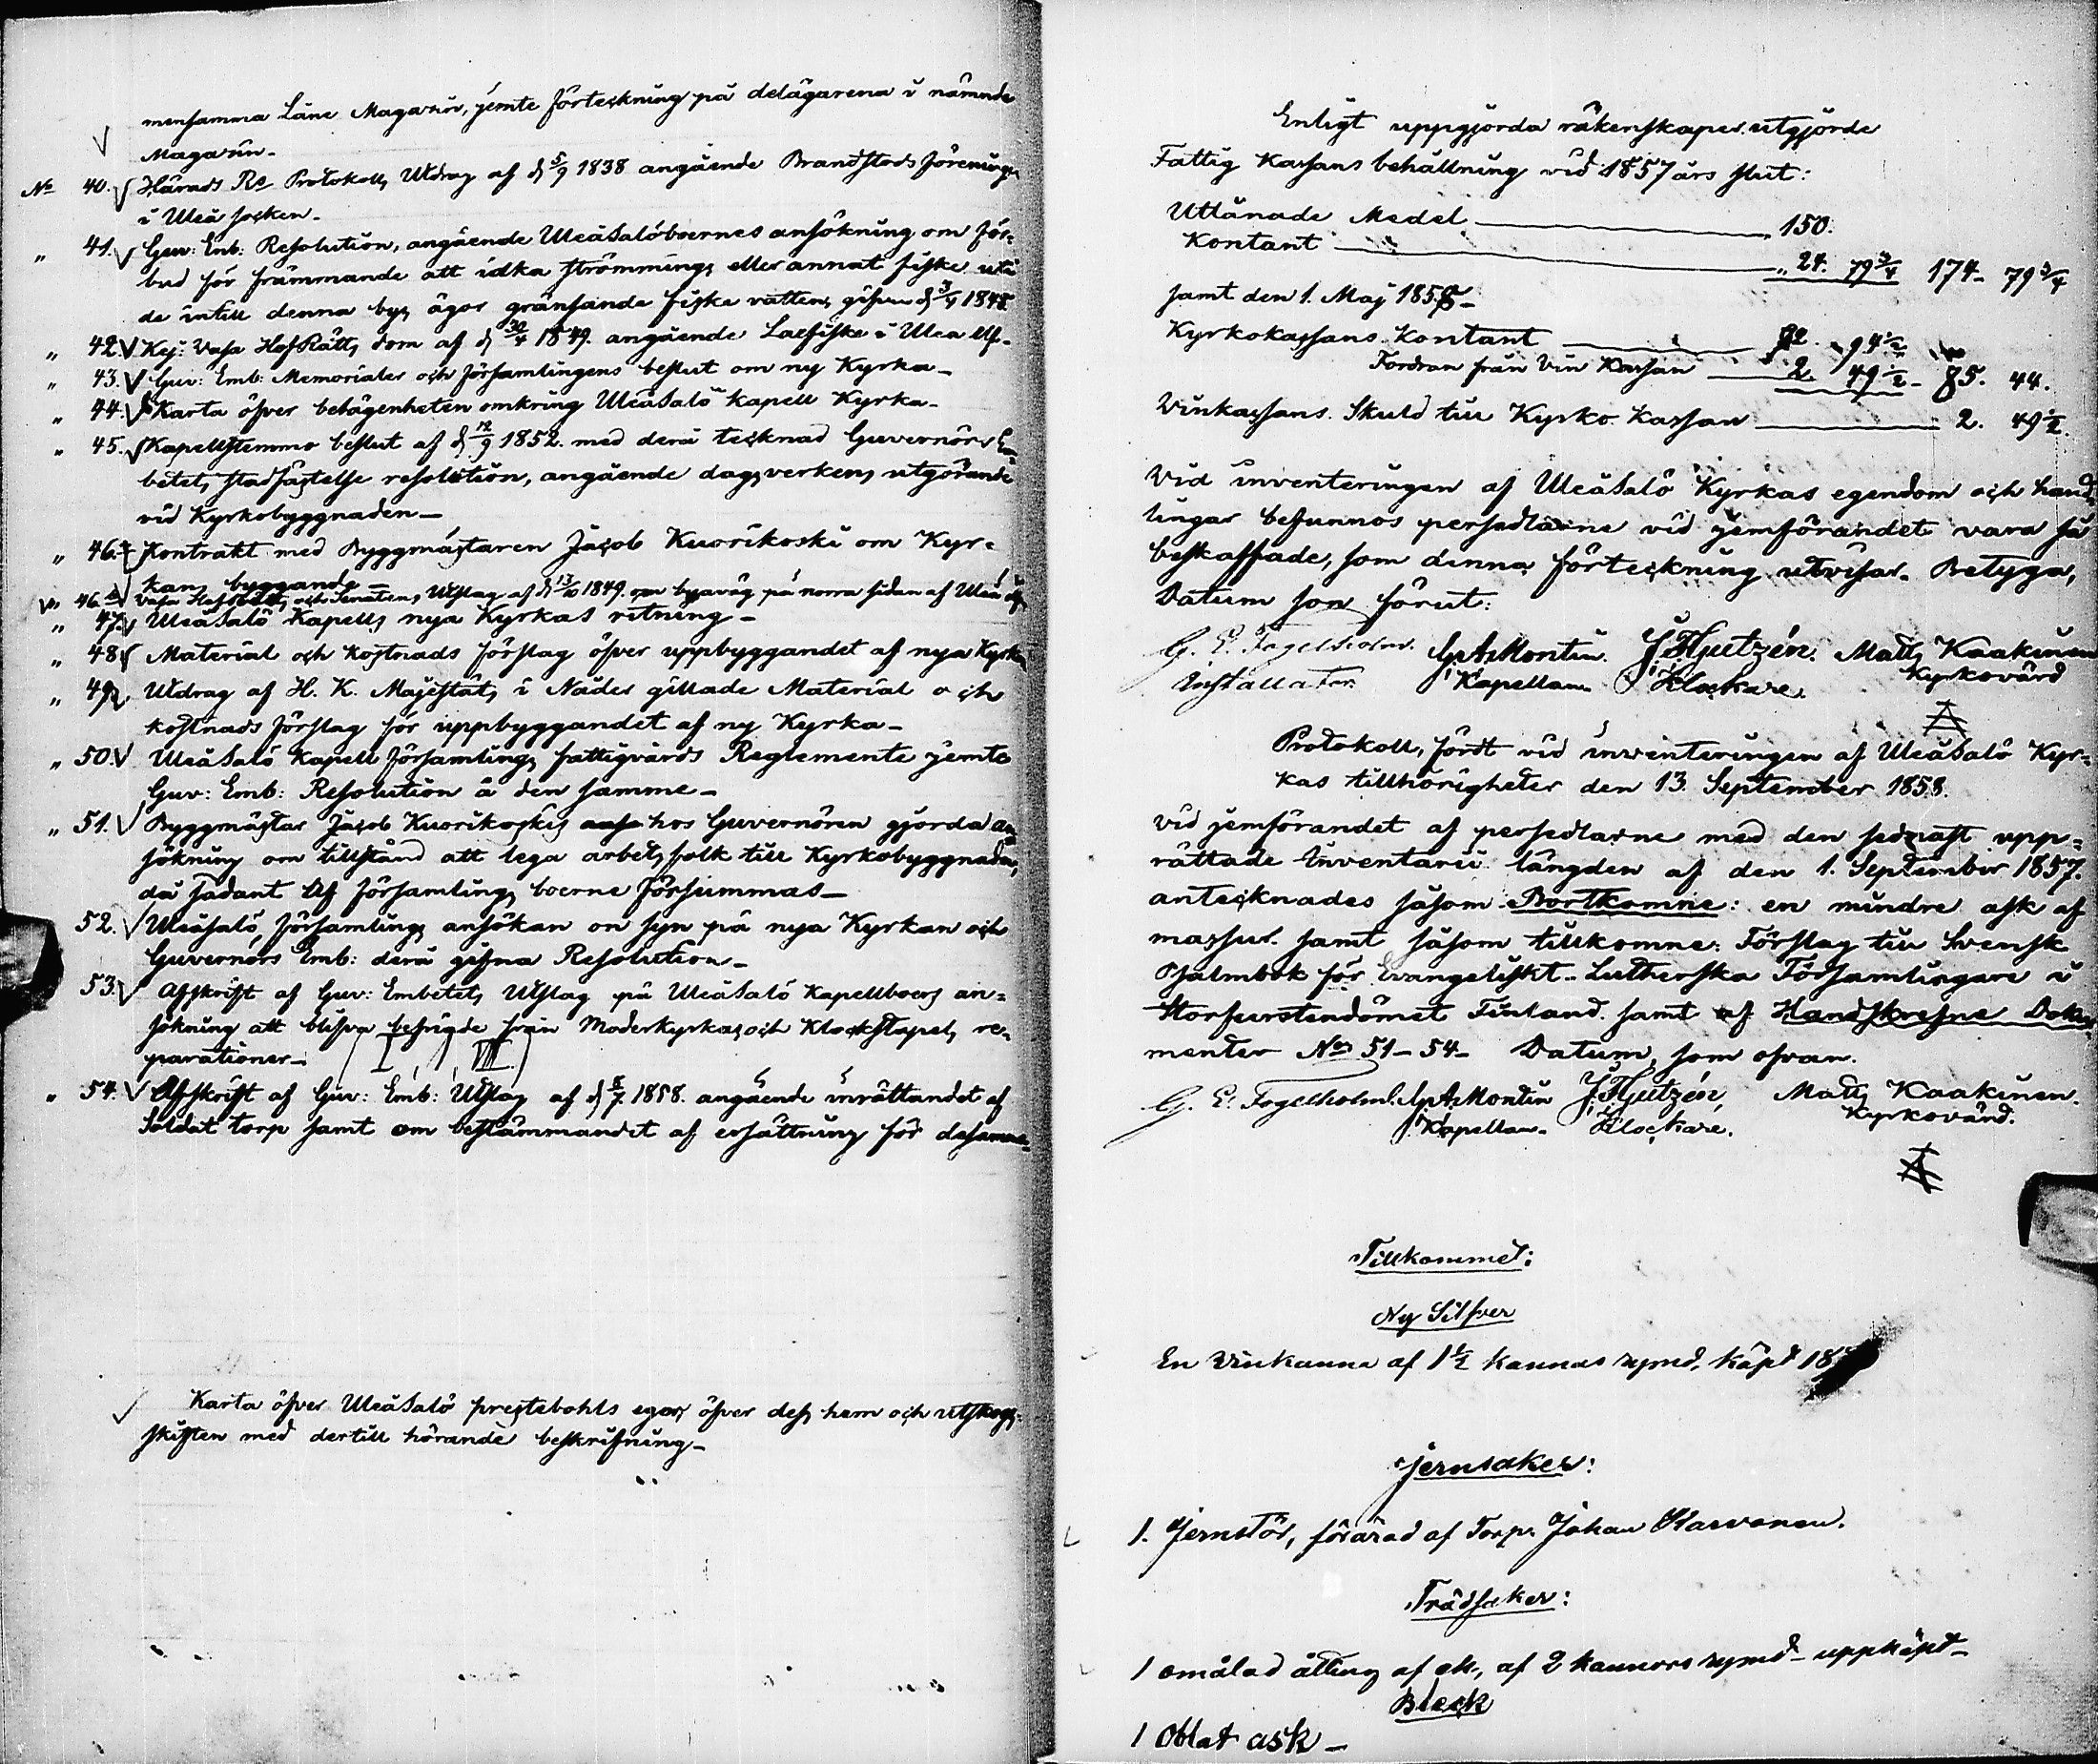 mensamma Låne Magazin, jemte förteckning på delägarena i nämnde
Magazin.
No 40. Härads Rs Protokolls Utdrag af d. 5/9 1838 angående Brandstods förening
i Uleå socken.
" 41. Guv: Emb: Resolution, angående Uleåsalöboernes ansökning om för-
bud för främmande att idka strömmings eller annat fiske uti
de intill denna bys ägor gränsande fiske vatten, gifven d. 3/4 1848
" 42 Kej: Vasa HofRätts dom af d. 30/4 1849. angående Laxfiske i Uleå Elf.
" 43. Guv: Emb: Memorialer och församlingens beslut om ny Kyrka
" 44. Karta öfver belägenheten omkring Uleåsalo kapell Kyrka.
" 45. Kapellstemmo beslut af d. 12/9 1852. med derå tecknad Guvernörs Em-
betets stadfästelse resolution, angående dagsverkens utgörande
vid Kyrkobyggnaden
" 46. Kontrakt med Byggmästaren Jacob Kuorikoski om Kyr-
kans byggande
" 46.a Vasa Hofrätts och Senatens Utslag af d. 13/10 1849. om byaväg på norra sidan af Uleå elf
" 47. Uleåsalo Kapells nya Kyrkas ritning
" 48 Material och kostnads förslag öfver uppbyggandet af nya Kyrkan
" 49. Utdrag af H. K. Majestäts i Nåder gillade Material och
kostnads förslag för uppbyggandet af ny Kyrka
" 50. Uleåsalo Kapell församlings fattigvårds Reglemente jemte
Guv: Emb: Resolution å den samme
" 51. Byggmästar Jacob Kuorikoskis hos Guvernören gjorda an
sökning om tillstånd att lega arbetsfolk till Kyrkobyggnaden,
då sådant af församlings boerne försummas
52. Uleåsalo församlings ansökan om syn på nya Kyrkan och
Guvernörs Emb: derå gifna Resolution
53. Afskrift af Guv: Embetets Utslag på Uleåsalo Kapellboers an-
sökning att blifva befriade från Moderkyrkas och Klockstapels re-
parationer
I VIII
" 54. Afskrift af Guv: Emb: Utslag af d. 8/7 1858. angående inrättandet af
Soldat torp samt om bestämmandet af ersättning för desamma
Karta öfver Uleåsalo prestebohls egor öfver dess hem och utskogs-
skiften med dertill hörande beskrifning
Enligt uppgjorda räkenskaper utgjorde
Fattig Kassans behållning vid 1857 års slut:
Utlånade Medel 150.
Kontant " 24. 79 3/4 174. 79 3/4
samt den 1. Maj 1858
Kyrkokassans Kontant 82. 94 1/2
Fordran från Vin Kassan 2. 49 1/2 85. 44.
Vinkassans Skuld till Kyrko Kassan 2. 49 1/2.
Vid inventeringen af Uleåsalo Kyrkas egendom och hand-
lingar befunnos persedlarne vid jemförandet vara så
beskaffade, som denna förteckning utvisar. Betyga,
Datum som förut:
G. E. Fogelholm. G. A. Montin. J. Hjutzén. Matts Kaakinen
Installator. Kapellan. Klockare. Kyrkovärd
Protokoll, fördt vid inventeringen af Uleåsalo Kyr-
kas tillhörigheter den 13. September 1858.
Vid jemförandet af persedlarne med den sednast upp-
rättade Inventarii längden af den 1. September 1857.
antecknades såsom Bortkomne: en mindre ask af
massur. samt såsom tillkomne: Förslag till Svensk
Psalmbok för Evangeliskt-Lutherska Församlingare i
Storfurstendömet Finland. samt af Handskrefne Doku-
menter Nos 51-54. Datum, som ofvan.
G. E. Fogelholm. G. A. Montin J. Hjutzén, Matts Kaakinen.
Kapellan. Klockare. Kyrkovärd.
Tillkommet:
Ny Silfver
En Vinkanna af 1 1/2 kannas rymd, köpt 18
Jernsaker:
1. Jernstör, förärad af Torp. Johan Karvonen.
Trädsaker:
1 omålad åtting af ek, af 2 kannors rymd uppköpt
Bleck
1 Oblat ask